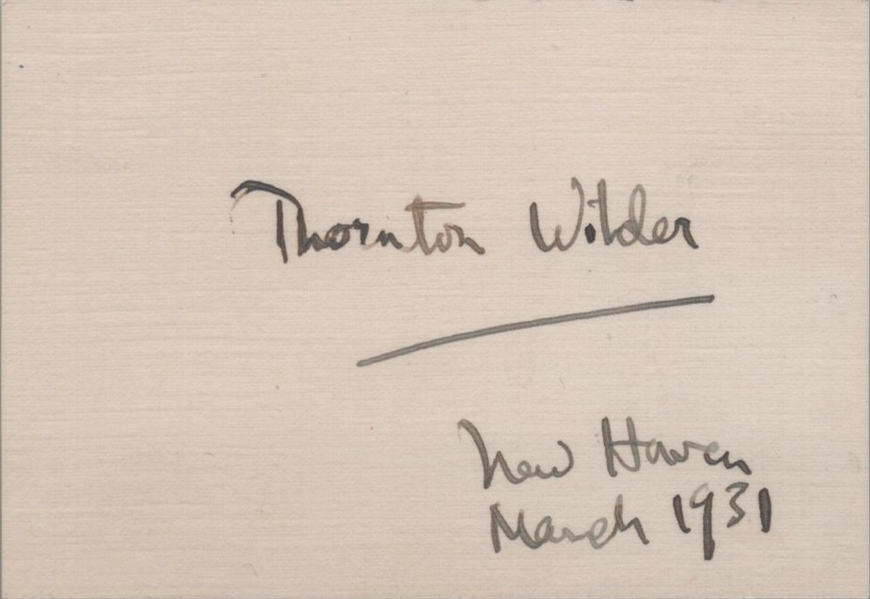 Thornton Wilder
New Haven
March 1931